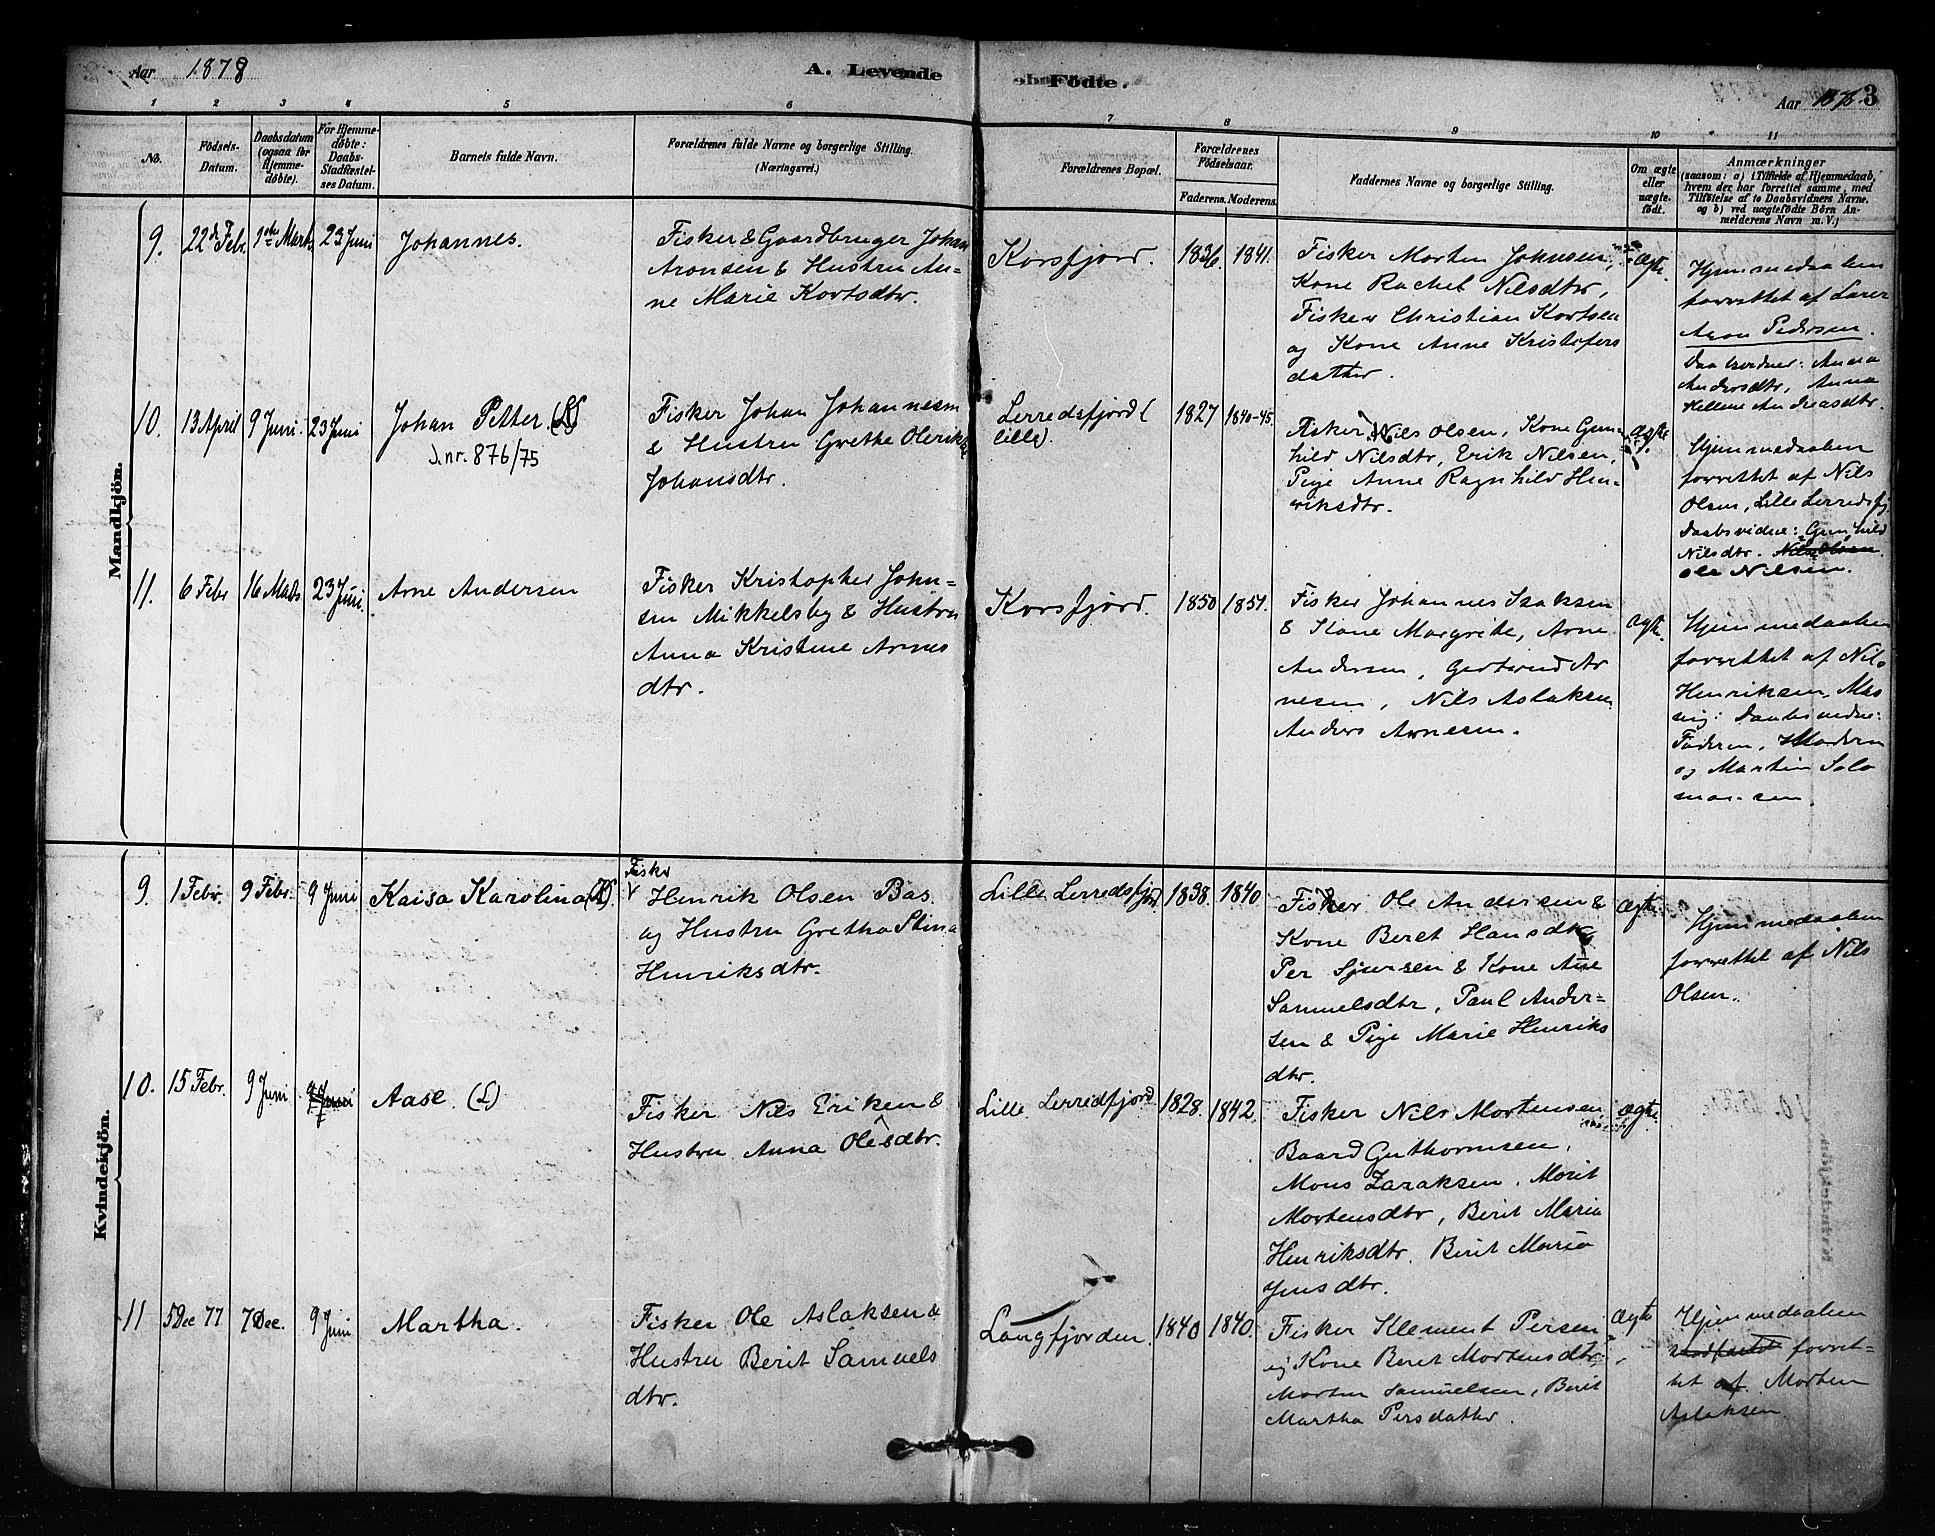 Aar 1878
A. Levende Födte.
Aar 1878. 3
1 2 3 4 5 6 7 8 9 10 11
No.
Födsels-Datum.
Daabsdatum (ogsaa for Hjemme-døbte).
For Hjemme-døbte: Daabs-Stadfæstel-ses Datum.
Barnets fulde Navn.
Forældrenes fulde Navne og borgerlige Stilling.
(Næringsvei.)
Forældrenes Bopæl.
Forældrenes Fødselsaar.
Faderens. Moderens.
Faddernes Navne og borgerlige Stilling.
Om ægte eller uægte født.
Anmærkninger
(saasom: a) i Tilfælde af Hjemmedaab,
hvem der har forrettet samme, med
Tilføielse af to Daabsvidners Navne,
og b) ved uægtefødte Börn An-
melderens Navn m. V.)
Mandkjön.
9. 22de Febr. 1ste Marts 23 Juni Johannes.
Fisker & Gaardbruger Johan
Aronsen & Hustru An-
ne Marie Kortsdtr.
Korsfjord. 1836. 1841.
Fisker Morten Johnsen,
Kone Rachel Nilsdtr,
Fisker Christian Kortsen
og Kone Anne Kristofers
datter.
Ægte.
Hjemmedaaben
forrettet af Lærer
Aron Pedersen.
Daabsvidner: Anna
Andersdtr, Anna
Hellene Andreasdtr.
10. 13 April 9 Juni. 23 Juni Johan Petter (L)
J.nr. 876/75
Fisker Johan Johannesen
& Hustru Grethe Olerikke
Johansdtr.
Lerredsfjord (
lille).
1827 1840-45.
Fisker Nils Olsen, Kone Gun-
hild Nilsdtr, Erik Nilsen,
Pige Anne Ragnhild Hen-
riksdtr.
ægte
Hjemmedaaben
forrettet af Nils
Olsen, Lille Lerredsfj.
Daabsvidne: Gunhild
Nilsdtr.
Ole Nilsen.
11. 6 Febr 16 Mads 23 Juni. Arne Andersen
Fisker Kristopher John-
sen Mikkelsby & Hustru
Anna Kristine Arnes
dtr.
Korsfjord. 1850 1851.
Fisker Johannes Isaksen
& Kone Margrite, Arne
Andersen, Gertrud Ar
nesen, Nils Aslaksen
Anders Arnesen.
ægte.
Hjemmedaaben
forrettet af Nils
Henriksen, Mas
sig: Daabsvidne:
Faderen, Moderen
og Martin Salo
monsen.
Kvindekjön.
9. 1 Febr. 9 Febr. 9 Juni Kaisa Karolina (K).
Fisker
Henrik Olsen Bas.
og Hustru Gretha Stina
Henriksdtr.
Lille Lerredsfjord. 1838. 1840.
Fisker Ole Andersen &
Kone Beret Hansdtr
Per Sjursen & Kone Ane
Samuelsdtr, Paul Ander-
sen & Pige Marie Henriks
dtr.
Ægte
Hjemmedaaben
forrettet af Nils
Olsen.
10. 15 Febr. 9 Juni 9 Juni Aase. (L)
Fisker Nils Eriken &
Hustru Anna Olesdtr.
Lille Lerredfjord 1828. 1842.
Fisker Nils Mortensen,
Baard Guthormsen,
Mons Zaraksen. Morit
Mortensdtr, Berit Maria
Henriksdtr. Berit Maria
Jensdtr.
Ægte
11 5 Dec 77 7 Dec. 9 Juni Martha.
Fisker Ole Aslaksen &
Hustru Berit Samuels
dtr.
Langfjorden 1840 1840.
Fisker Klement Persen
og Kone Beret Mortensdtr,
Morten Samuelsen, Berit
Martha Persdatter.
Ægte
Hjemmedaaben
forret-
tet af Morten
Aslaksen.